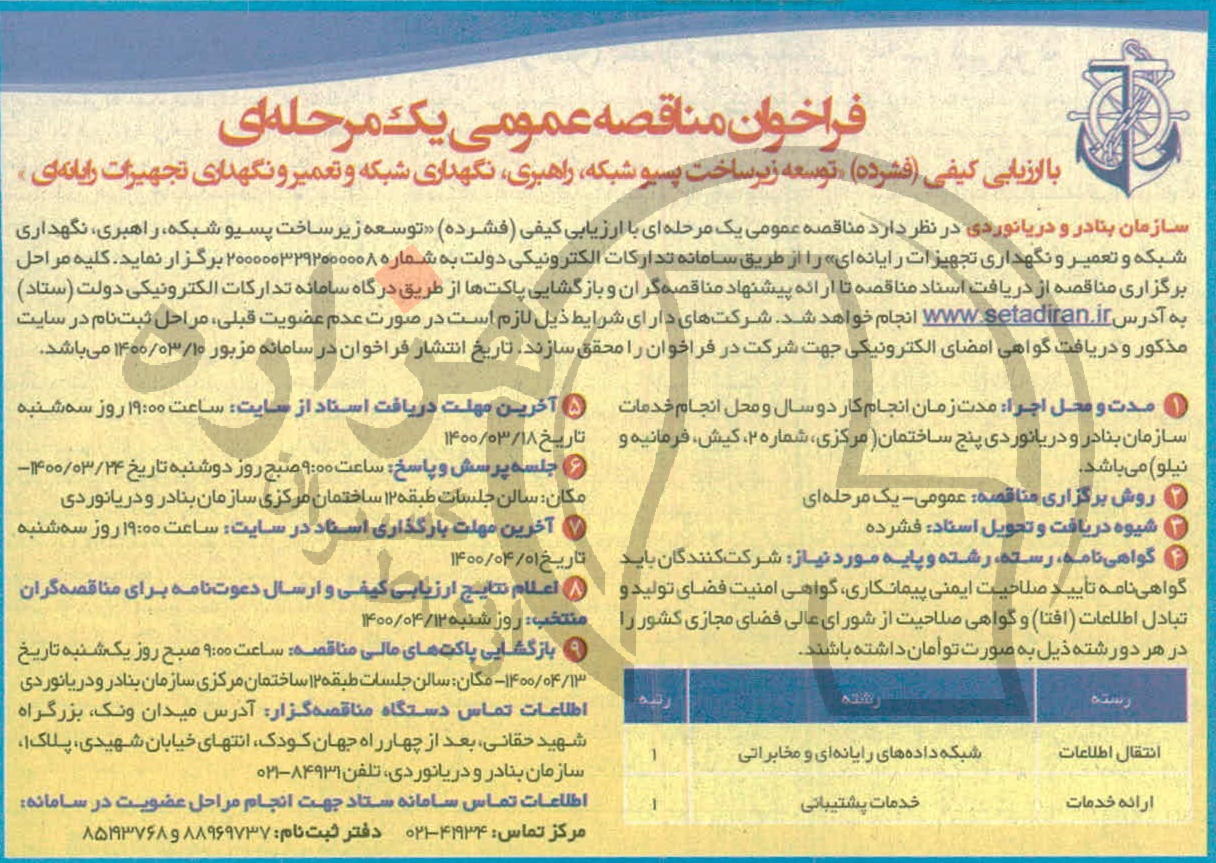 فراخوان مناقصه عمومی یک مرحله‌ای
با ارزیابی کیفی (فشرده) «توسعه زیرساخت پسیو شبکه، راهبری، نگهداری شبکه و تعمیر و نگهداری تجهیزات رایانه‌ای»
سازمان بنادر و دریانوردی در نظر دارد مناقصه عمومی یک مرحله‌ای با ارزیابی کیفی (فشرده) «توسعه زیرساخت پسیو شبکه، راهبری، نگهداری
شبکه و تعمیر و نگهداری تجهیزات رایانه‌ای» را از طریق سامانه تدارکات الکترونیکی دولت به شماره ۲۰۰۰۰۰۳۲۹۲۰۰۰۰۰۸ برگزار نماید. کلیه مراحل
برگزاری مناقصه از دریافت اسناد مناقصه تا ارائه پیشنهاد مناقصه‌گران و بازگشایی پاکت‌ها از طریق درگاه سامانه تدارکات الکترونیکی دولت (ستاد)
به آدرس www.setadiran.ir انجام خواهد شد. شرکت‌های دارای شرایط ذیل لازم است در صورت عدم عضویت قبلی، مراحل ثبت‌نام در سایت
مذکور و دریافت گواهی امضای الکترونیکی جهت شرکت در فراخوان را محقق سازند. تاریخ انتشار فراخوان در سامانه مزبور ۱۴۰۰/۰۳/۱۰ می‌باشد.
۱ مدت و محل اجرا: مدت زمان انجام کار دو سال و محل انجام خدمات
سازمان بنادر و دریانوردی پنج ساختمان( مرکزی، شماره ۲، کیش، فرمانیه و
نیلو) می‌باشد.
۲ روش برگزاری مناقصه: عمومی- یک مرحله‌ای
۳ شیوه دریافت و تحویل اسناد: فشرده
۴ گواهی‌نامه، رسته، رشته و پایه مورد نیاز: شرکت‌کنندگان باید
گواهی‌نامه تأیید صلاحیت ایمنی پیمانکاری، گواهی امنیت فضای تولید و
تبادل اطلاعات (افتا) و گواهی صلاحیت از شورای عالی فضای مجازی کشور را
در هر دو رشته ذیل به صورت توأمان داشته باشند.
رسته رشته رتبه
انتقال اطلاعات شبکه داده‌های رایانه‌ای و مخابراتی ۱
ارائه خدمات خدمات پشتیبانی ۱
۵ آخرین مهلت دریافت اسناد از سایت: ساعت ۱۹:۰۰ روز سه‌شنبه
تاریخ ۱۴۰۰/۰۳/۱۸
۶ جلسه پرسش و پاسخ: ساعت ۹:۰۰ صبح روز دوشنبه تاریخ ۱۴۰۰/۰۳/۲۴-
مکان: سالن جلسات طبقه ۱۲ ساختمان مرکزی سازمان بنادر و دریانوردی
۷ آخرین مهلت بارگذاری اسناد در سایت: ساعت ۱۹:۰۰ روز سه‌شنبه
تاریخ ۱۴۰۰/۰۴/۰۱
۸ اعلام نتایج ارزیابی کیفی و ارسال دعوت‌نامه برای مناقصه‌گران
منتخب: روز شنبه ۱۴۰۰/۰۴/۱۲
۹ بازگشایی پاکت‌های مالی مناقصه: ساعت ۹:۰۰ صبح روز یک‌شنبه تاریخ
۱۴۰۰/۰۴/۱۳- مکان: سالن جلسات طبقه ۱۲ ساختمان مرکزی سازمان بنادر و دریانوردی
اطلاعات تماس دستگاه مناقصه‌گزار: آدرس میدان ونک، بزرگراه
شهید حقانی، بعد از چهارراه جهان کودک، انتهای خیابان شهیدی، پلاک ۱،
سازمان بنادر و دریانوردی، تلفن ۸۴۹۳۱-۰۲۱
اطلاعات تماس سامانه ستاد جهت انجام مراحل عضویت در سامانه:
مرکز تماس: ۴۱۹۳۴-۰۲۱ دفتر ثبت‌نام: ۸۸۹۶۹۷۳۷ و ۸۵۱۹۳۷۶۸